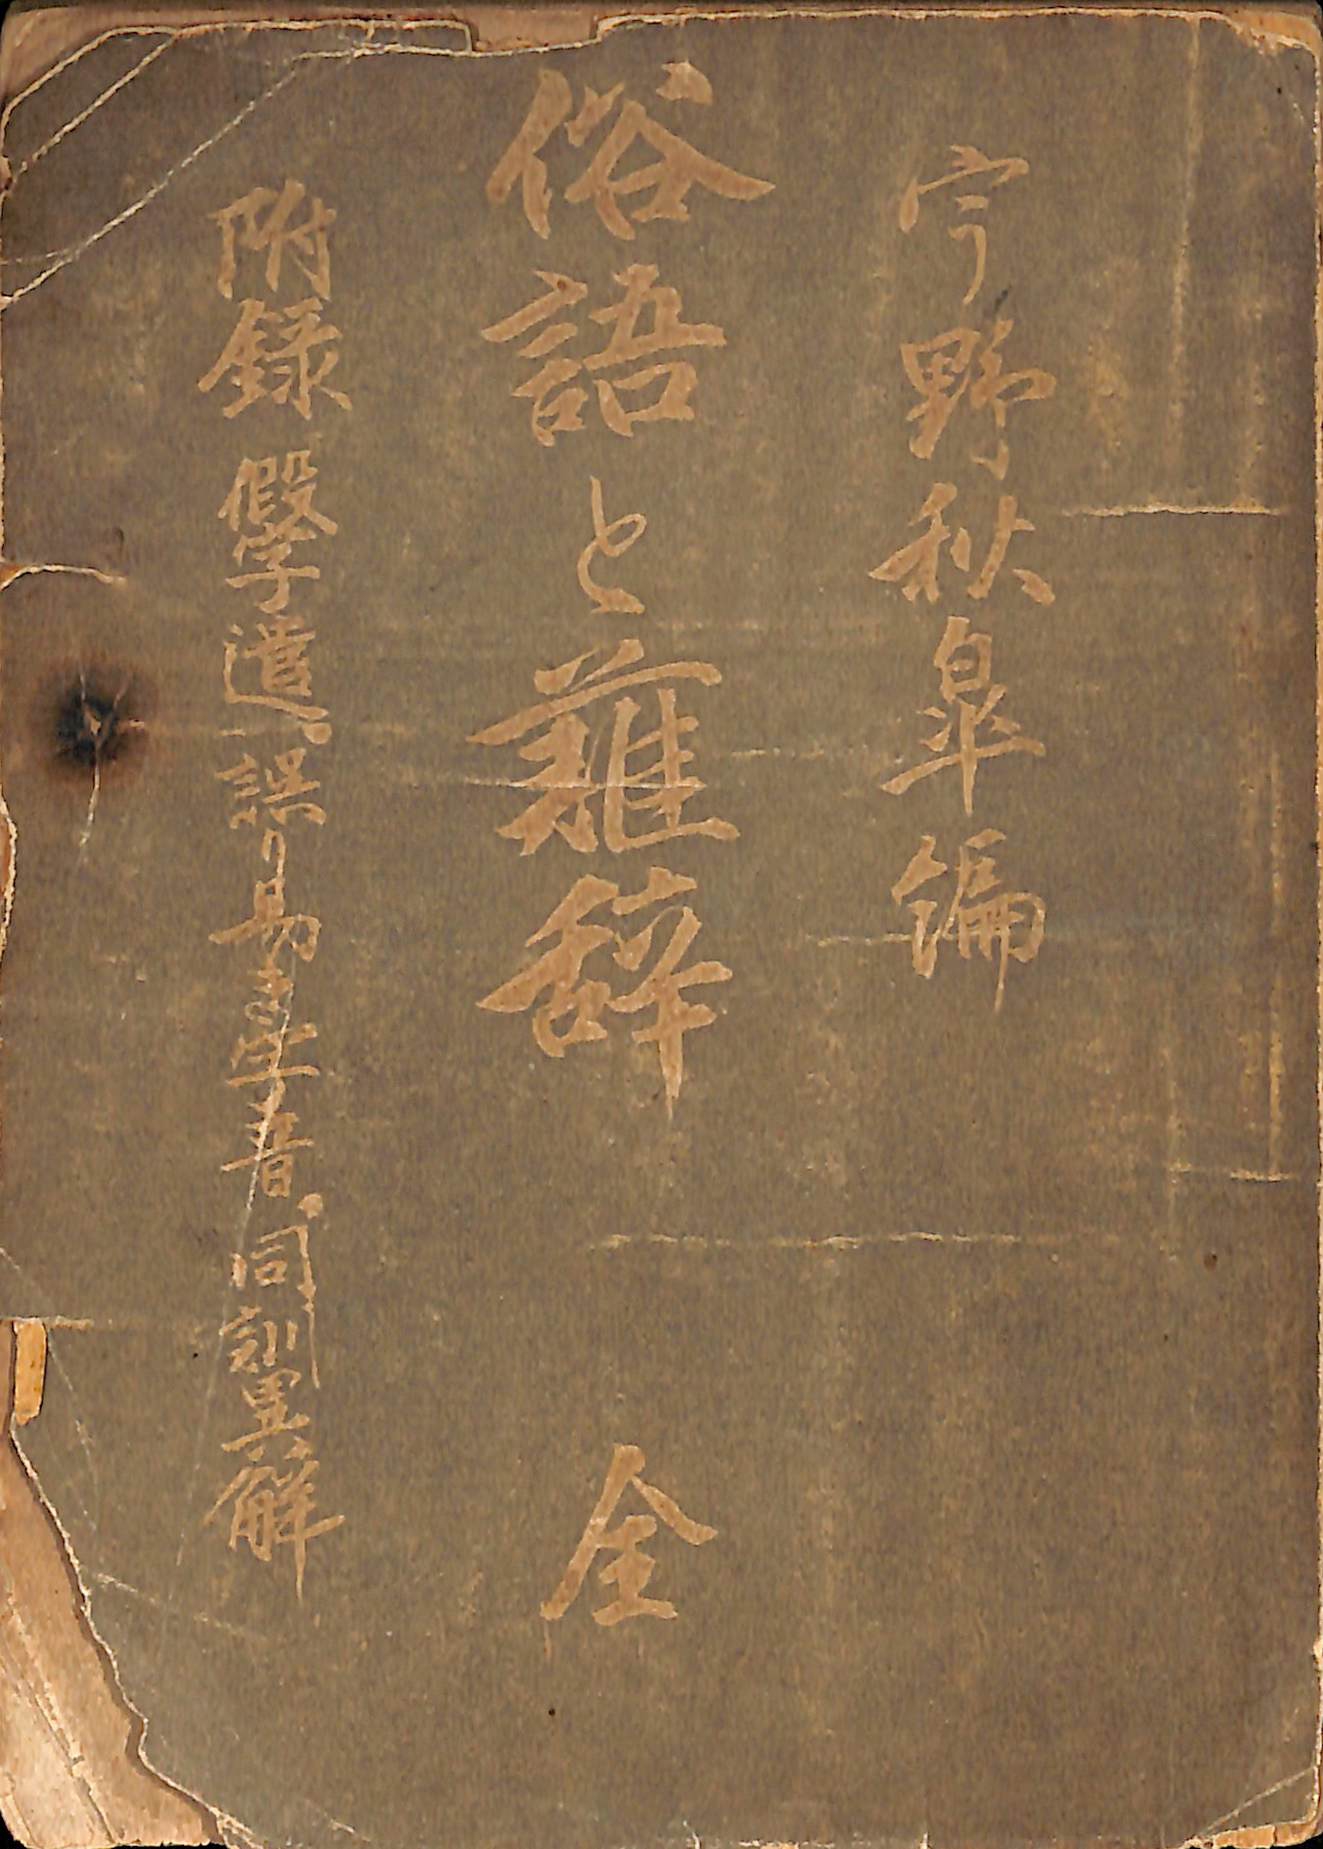 宇野秋皐編
俗語と難辞 全
附録 假字遣、誤り易き字音、同訓異解